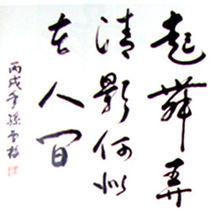 起舞弄
清影何似
在人间
丙戌年孫雪梅